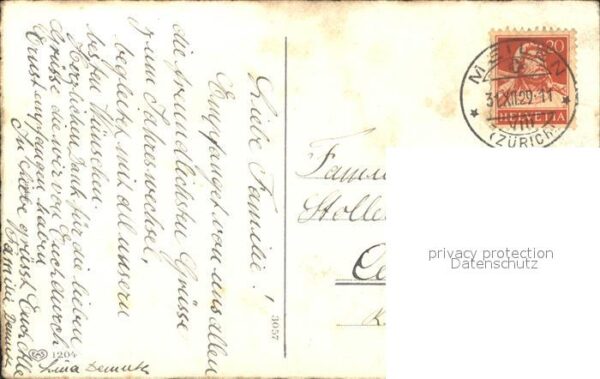 Liebe Familie!
Empfanget von uns allen
die freundlichsten Grüsse
zum Jahreswechsel,
begleitet mit all unsern
besten Wünschen.
Herzlichen Dank für die lieben
Grüße die wir von Euch durch
Ernst empfangen haben.
In Liebe grüsst Euch Alle
Familie Demuth
Lina Demuth
1204
3057
MEILEN
31.XII.29.11
(ZÜRICH)
20
HELVETIA
Familie
Stolle
privacy protection
Datenschutz